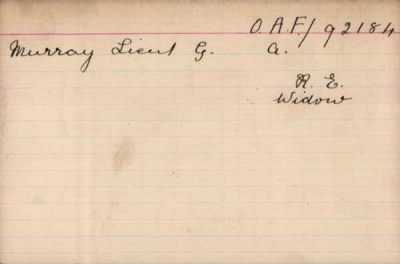 O.A.F./92184
Murray Lieut G. A.
R. E.
Widow